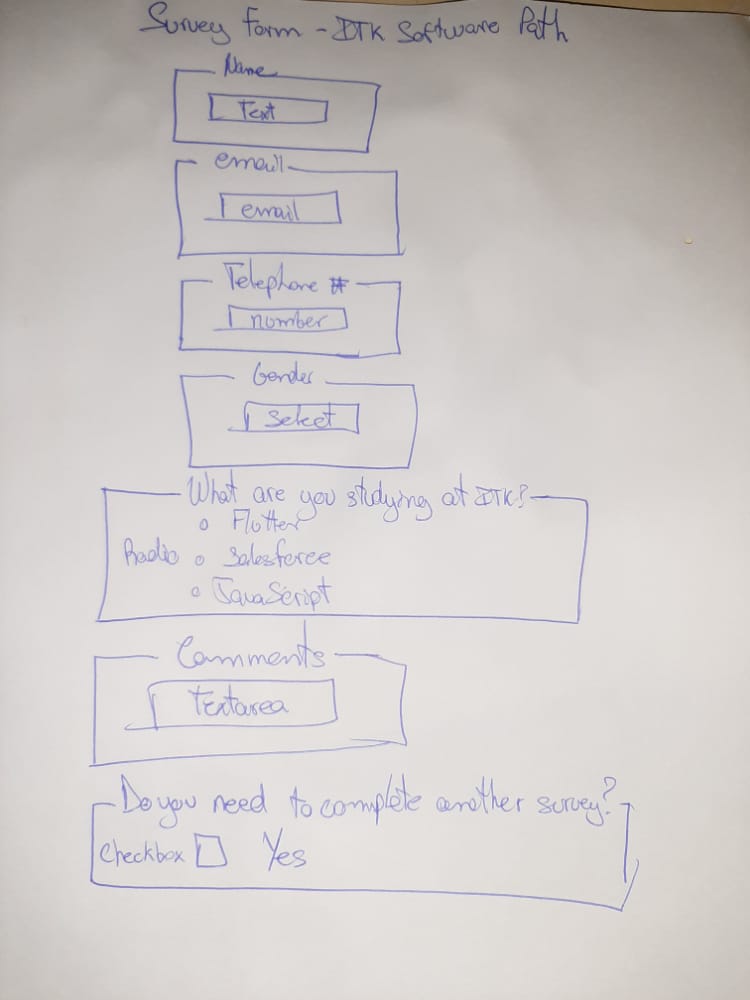 Survey Form - DTK Software Path
Name
Text
email
email
Telephone #
number
Gender
Select
What are you studying at DTK?
Flutter
Radio Salesforce
JavaScript
Comments
Textarea
Do you need to complete another survey?
Checkbox Yes